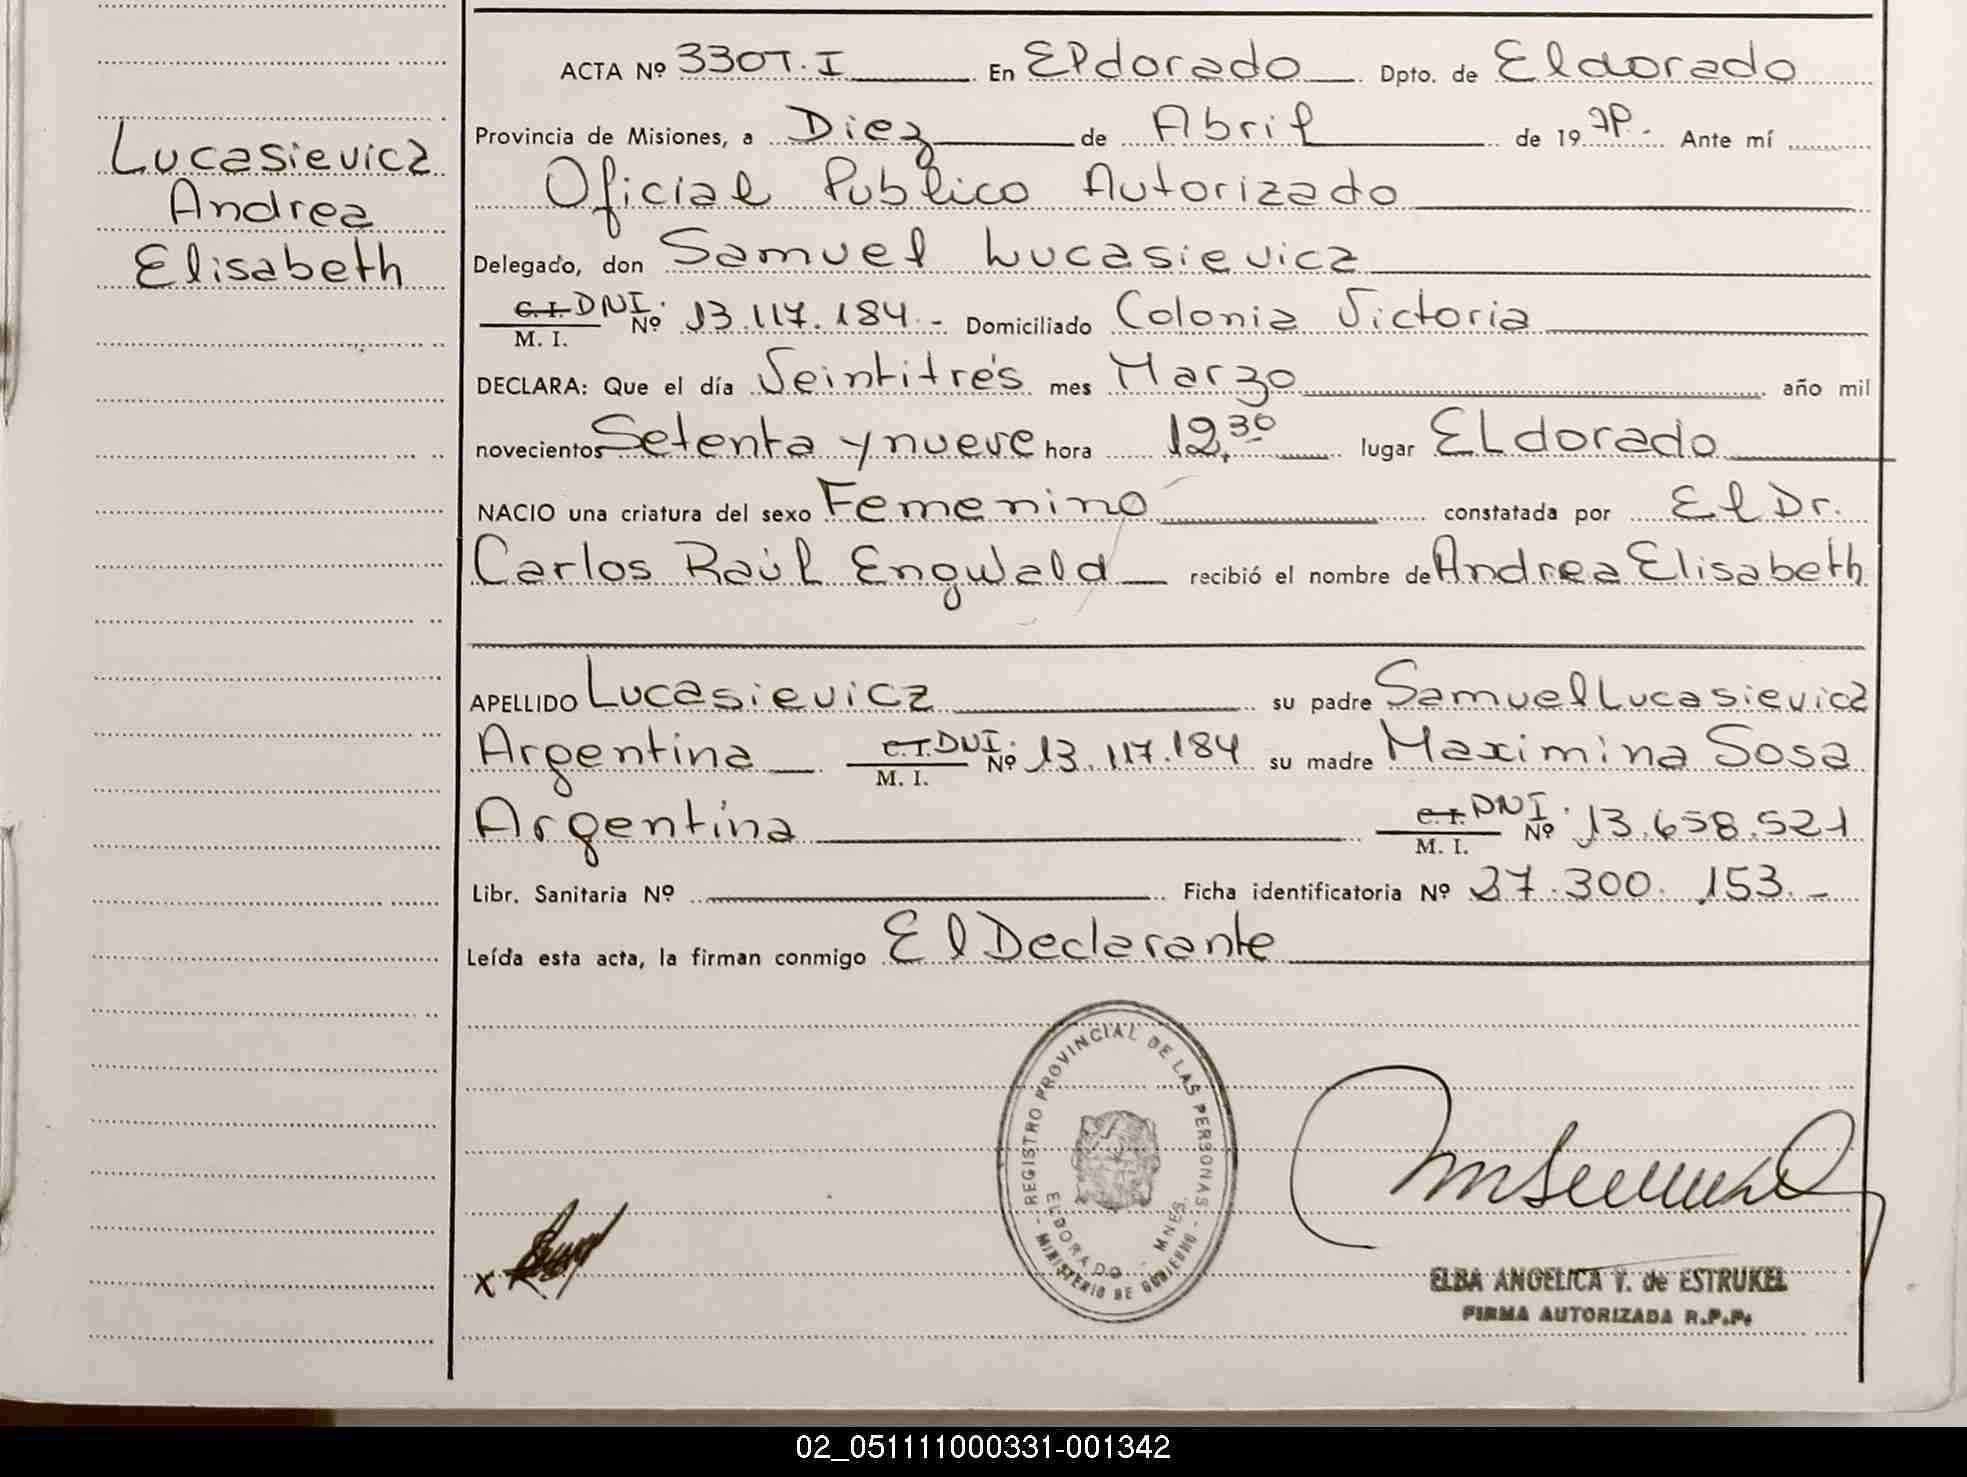 Lucasievicz
Andrea
Elisabeth
ACTA Nº 330T.I En Eldorado Dpto. de Eldorado
Provincia de Misiones, a Diez de Abril de 19 79. Ante mí
Oficial Publico Autorizado
Delegado, don Samuel Lucasievicz
C.I. DNI. M. I. Nº 13.117.184.- Domiciliado Colonia Victoria
DECLARA: Que el día Veintitrés mes Marzo año mil
novecientos Setenta y nueve hora 12,30 lugar Eldorado
NACIO una criatura del sexo Femenino constatada por El Dr.
Carlos Raúl Engwald recibió el nombre de Andrea Elisabeth
APELLIDO Lucasievicz su padre Samuel Lucasievicz
Argentina C.I. DNI. M. I. Nº 13.117.184 su madre Maximina Sosa
Argentina C.I. DNI. M. I. Nº 13.658.521
Libr. Sanitaria Nº Ficha identificatoria Nº 27.300.153.-
Leída esta acta, la firman conmigo El Declarante
REGISTRO PROVINCIAL DE LAS PERSONAS
ELDORADO - MNES.
- MINISTERIO DE GOBIERNO -
x
ELBA ANGELICA V. de ESTRUKEL
FIRMA AUTORIZADA R.P.P.
02_051111000331-001342